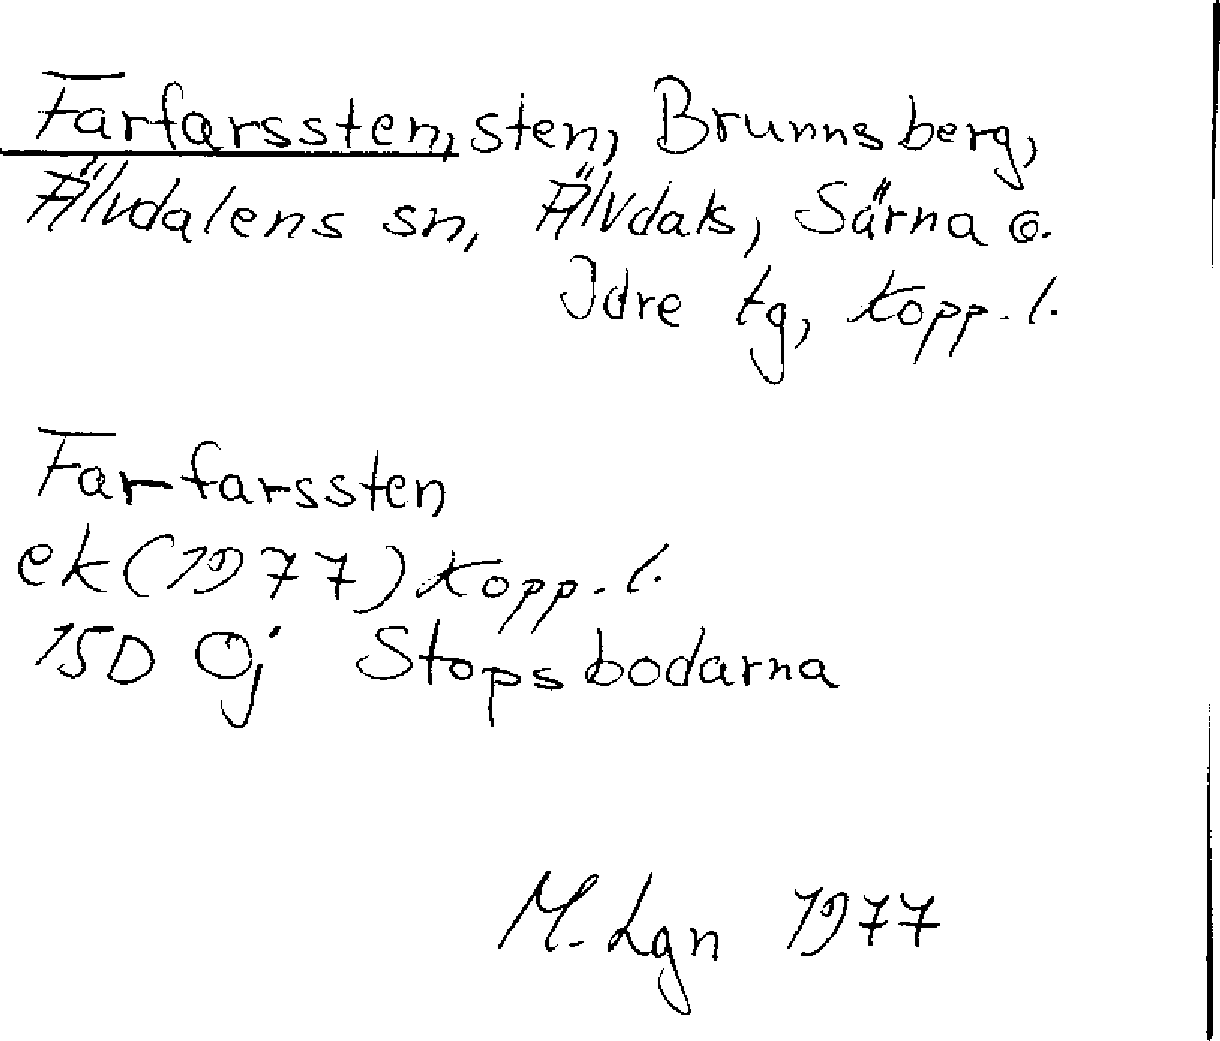 Farfarssten, sten, Brunnsberg,
Älvdalens sn, Älvdals, Särna o.
Idre tg, Kopp. l.
Farfarssten
ek (1977) Kopp. l.
15D 0j Stopsbodarna
M. Lgn 1977